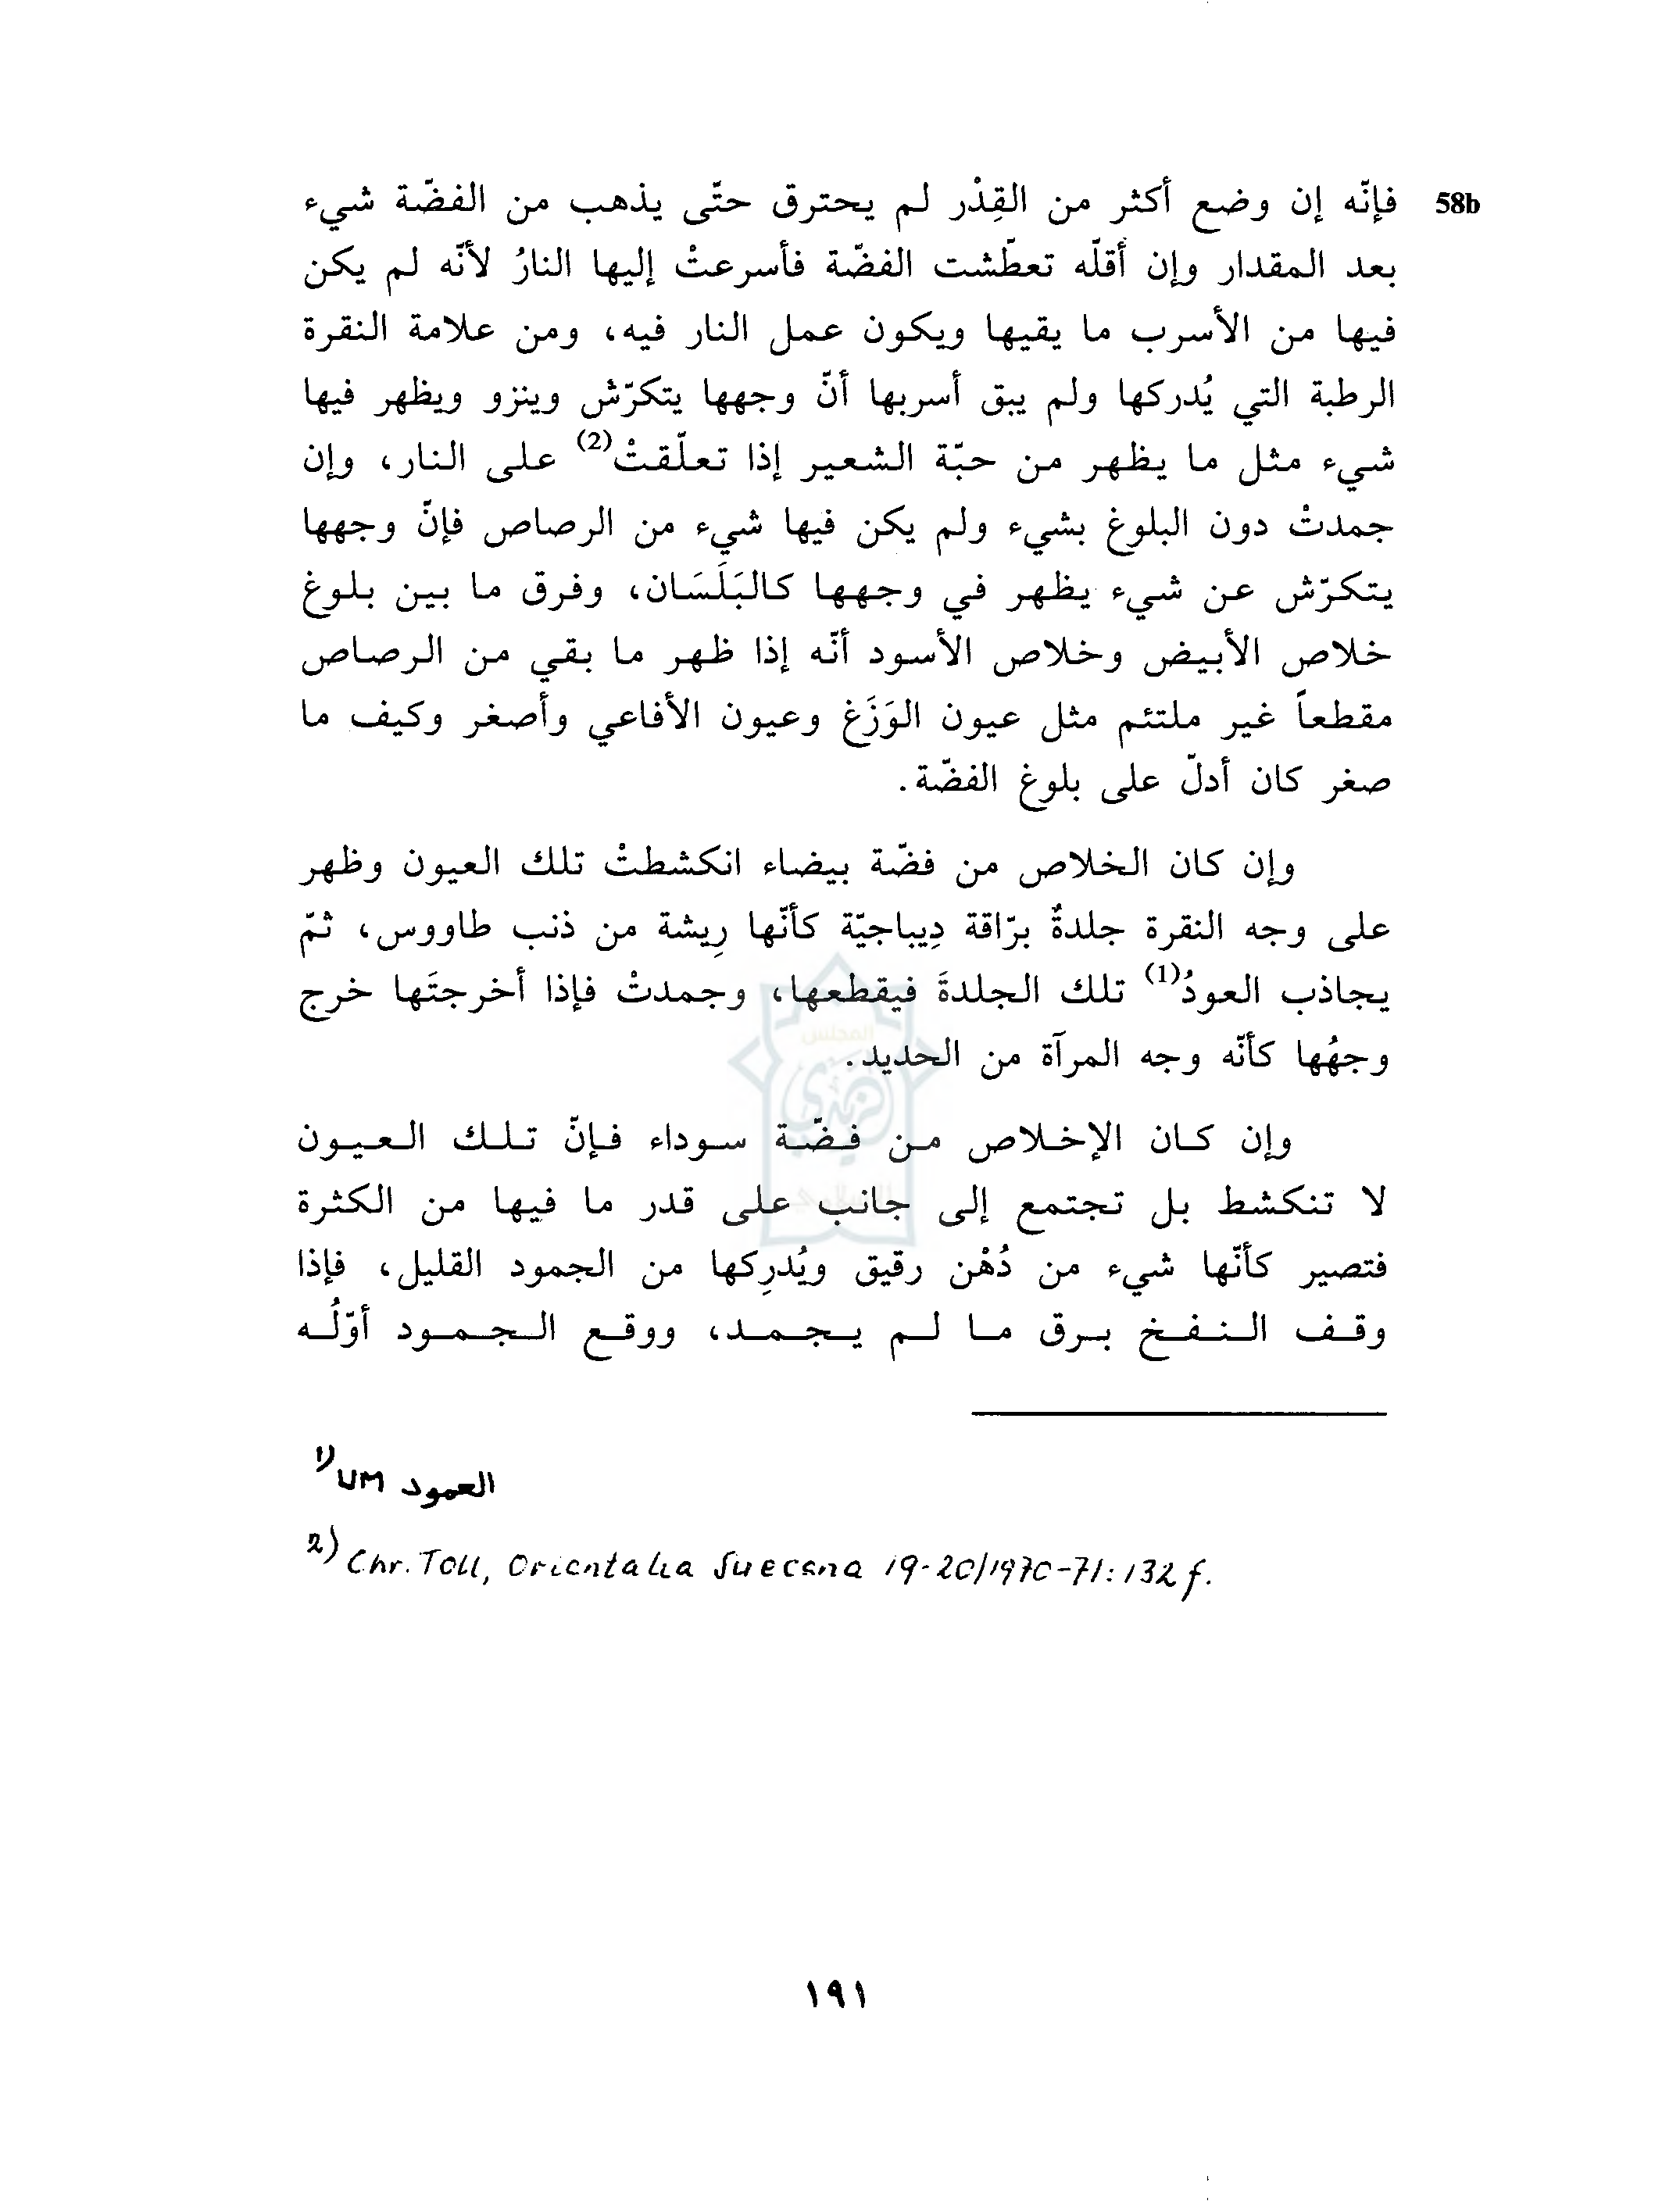 58b فإنّه إن وضع أكثر من القِدْر لم يحترق حتّى يذهب من الفضّة شيء
بعد المقدار وإن أقلّه تعطّشت الفضّة فأسرعتْ إليها النارُ لأنّه لم يكن
فيها من الأسرب ما يقيها ويكون عمل النار فيه، ومن علامة النقرة
الرطبة التي يُدركها ولم يبق أسربها أنّ وجهها يتكرّش وينزو ويظهر فيها
شيء مثل ما يظهر من حبّة الشعير إذا تعلّقتْ(2) على النار، وإن
جمدتْ دون البلوغ بشيء ولم يكن فيها شيء من الرصاص فإنّ وجهها
يتكرّش عن شيء يظهر في وجهها كالبَلَسَان، وفرق ما بين بلوغ
خلاص الأبيض وخلاص الأسود أنّه إذا ظهر ما بقي من الرصاص
مقطعاً غير ملتئم مثل عيون الوَزَغ وعيون الأفاعي وأصغر وكيف ما
صغر كان أدلّ على بلوغ الفضّة.
وإن كان الخلاص من فضّة بيضاء انكشطتْ تلك العيون وظهر
على وجه النقرة جلدةٌ برّاقة دِيباجيّة كأنّها رِيشة من ذنب طاووس، ثمّ
يجاذب العودُ(1) تلك الجلدةَ فيقطعها، وجمدتْ فإذا أخرجتَها خرج
وجهُها كأنّه وجه المرآة من الحديد.
وإن كان الإخلاص من فضّة سوداء فإنّ تلك العيون
لا تنكشط بل تجتمع إلى جانب على قدر ما فيها من الكثرة
فتصير كأنّها شيء من دُهْن رقيق ويُدرِكها من الجمود القليل، فإذا
وقف النفخ برق ما لم يجمد، ووقع الجمود أوّلُه
1) UM العمود
2) Chr. Toll, Orientalia Suecana 19-20/1970-71: 132 f.
١٩١